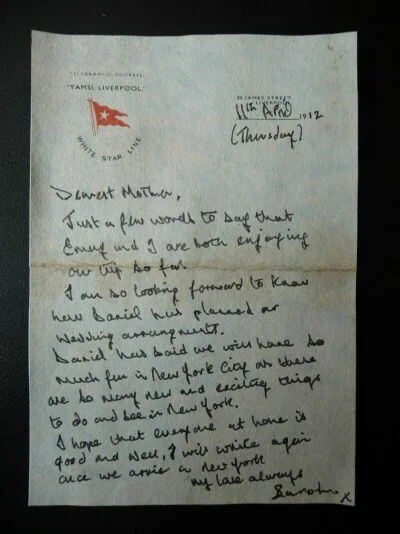 TELEGRAPHIC ADDRESS
"YAMSI, LIVERPOOL."
WHITE STAR LINE
30 JAMES STREET
LIVERPOOL
11th April 1912
(Thursday)
Dearest Mother,
Just a few words to say that
Emily and I are both enjoying
our trip so far.
I am so looking forward to know
how Daniel has planned our
wedding arrangments.
Daniel has said we will have so
much fun in New York City as there
are so many new and exciting things
to do and see in New York.
I hope that everyone at home is
good and well, I will write again
once we arrive in New York
my love always
x